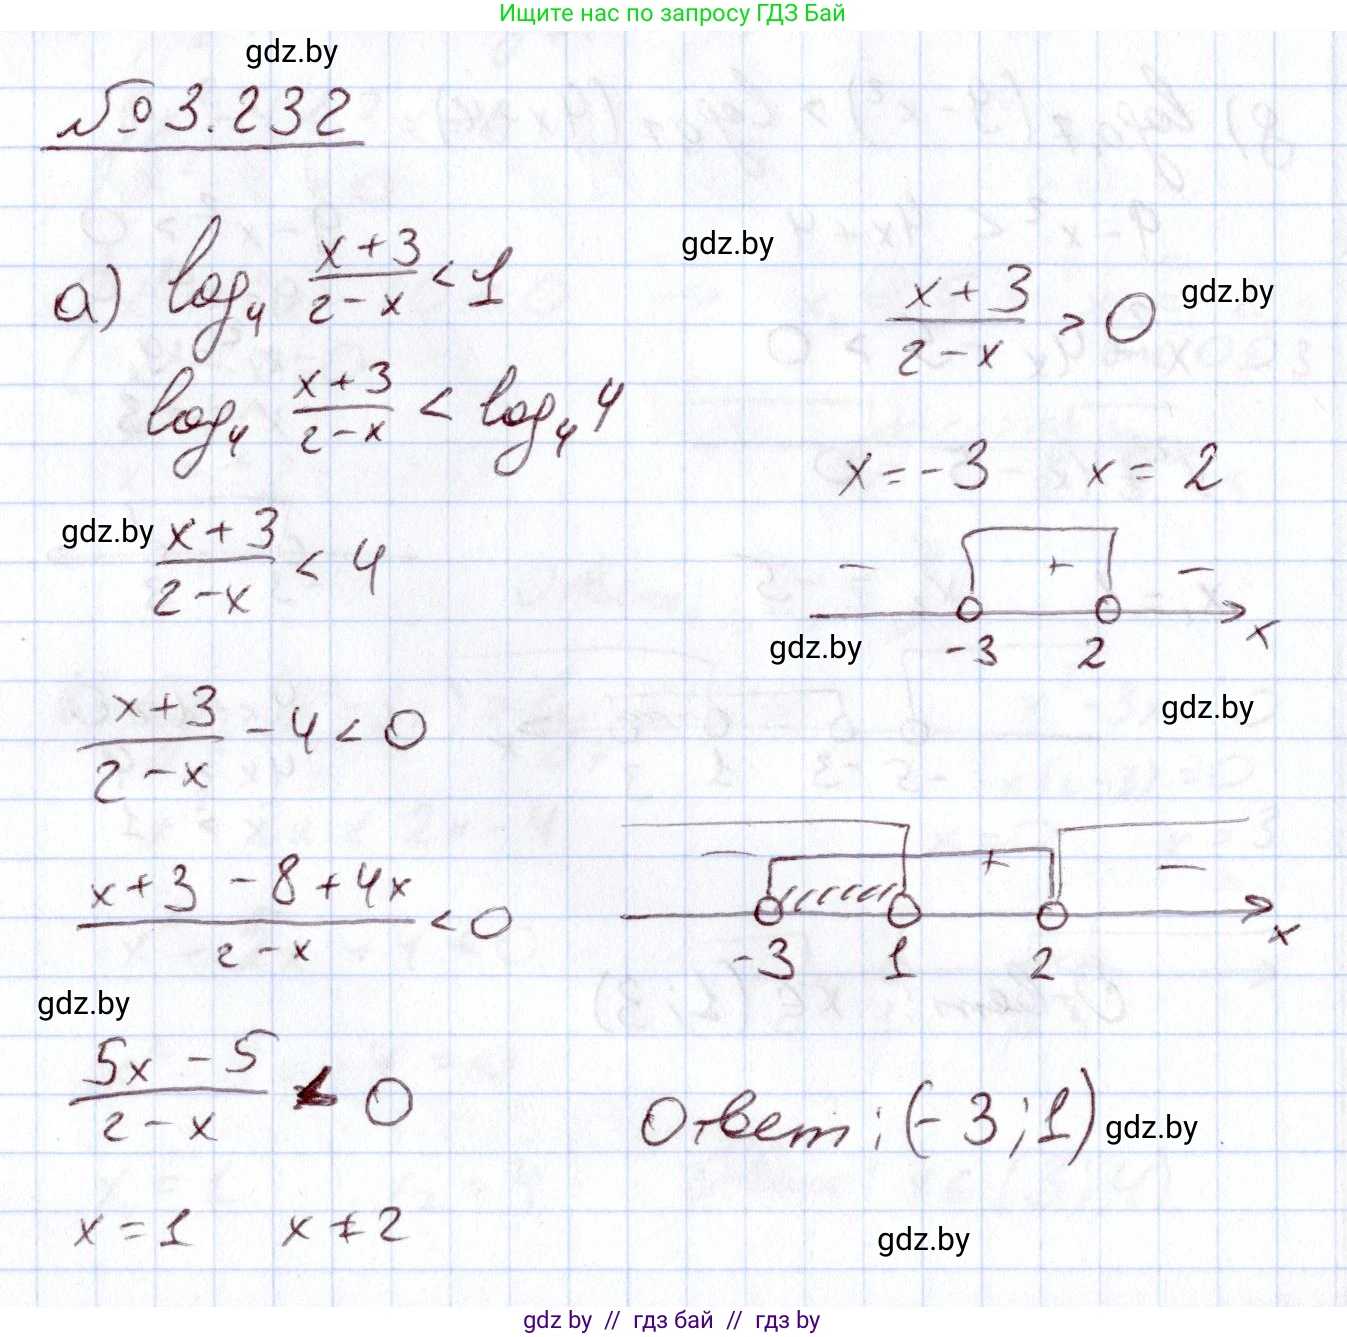 Ищите нас по запросу ГДЗ Бай
gdz.by
№ 3.232
а) log₄ (x+3)/(2-x) < 1
gdz.by
(x+3)/(2-x) > 0
gdz.by
log₄ (x+3)/(2-x) < log₄ 4
x=-3 x=2
gdz.by
(x+3)/(2-x) < 4
- + -
-3 2 x
gdz.by
gdz.by
(x+3)/(2-x) - 4 < 0
(x+3-8+4x)/(2-x) < 0
- + -
-3 1 2 x
gdz.by
(5x-5)/(2-x) < 0
Ответ: (-3;1)
gdz.by
x=1 x≠2
gdz.by
gdz by // гдз бай // гдз by